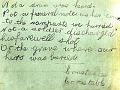 Not a drum was heard
Not a funeral note
as his corse
to the ramparts we hurried
Not a soldier discharged
his farewell shot
O'er the grave where our
hero was buried